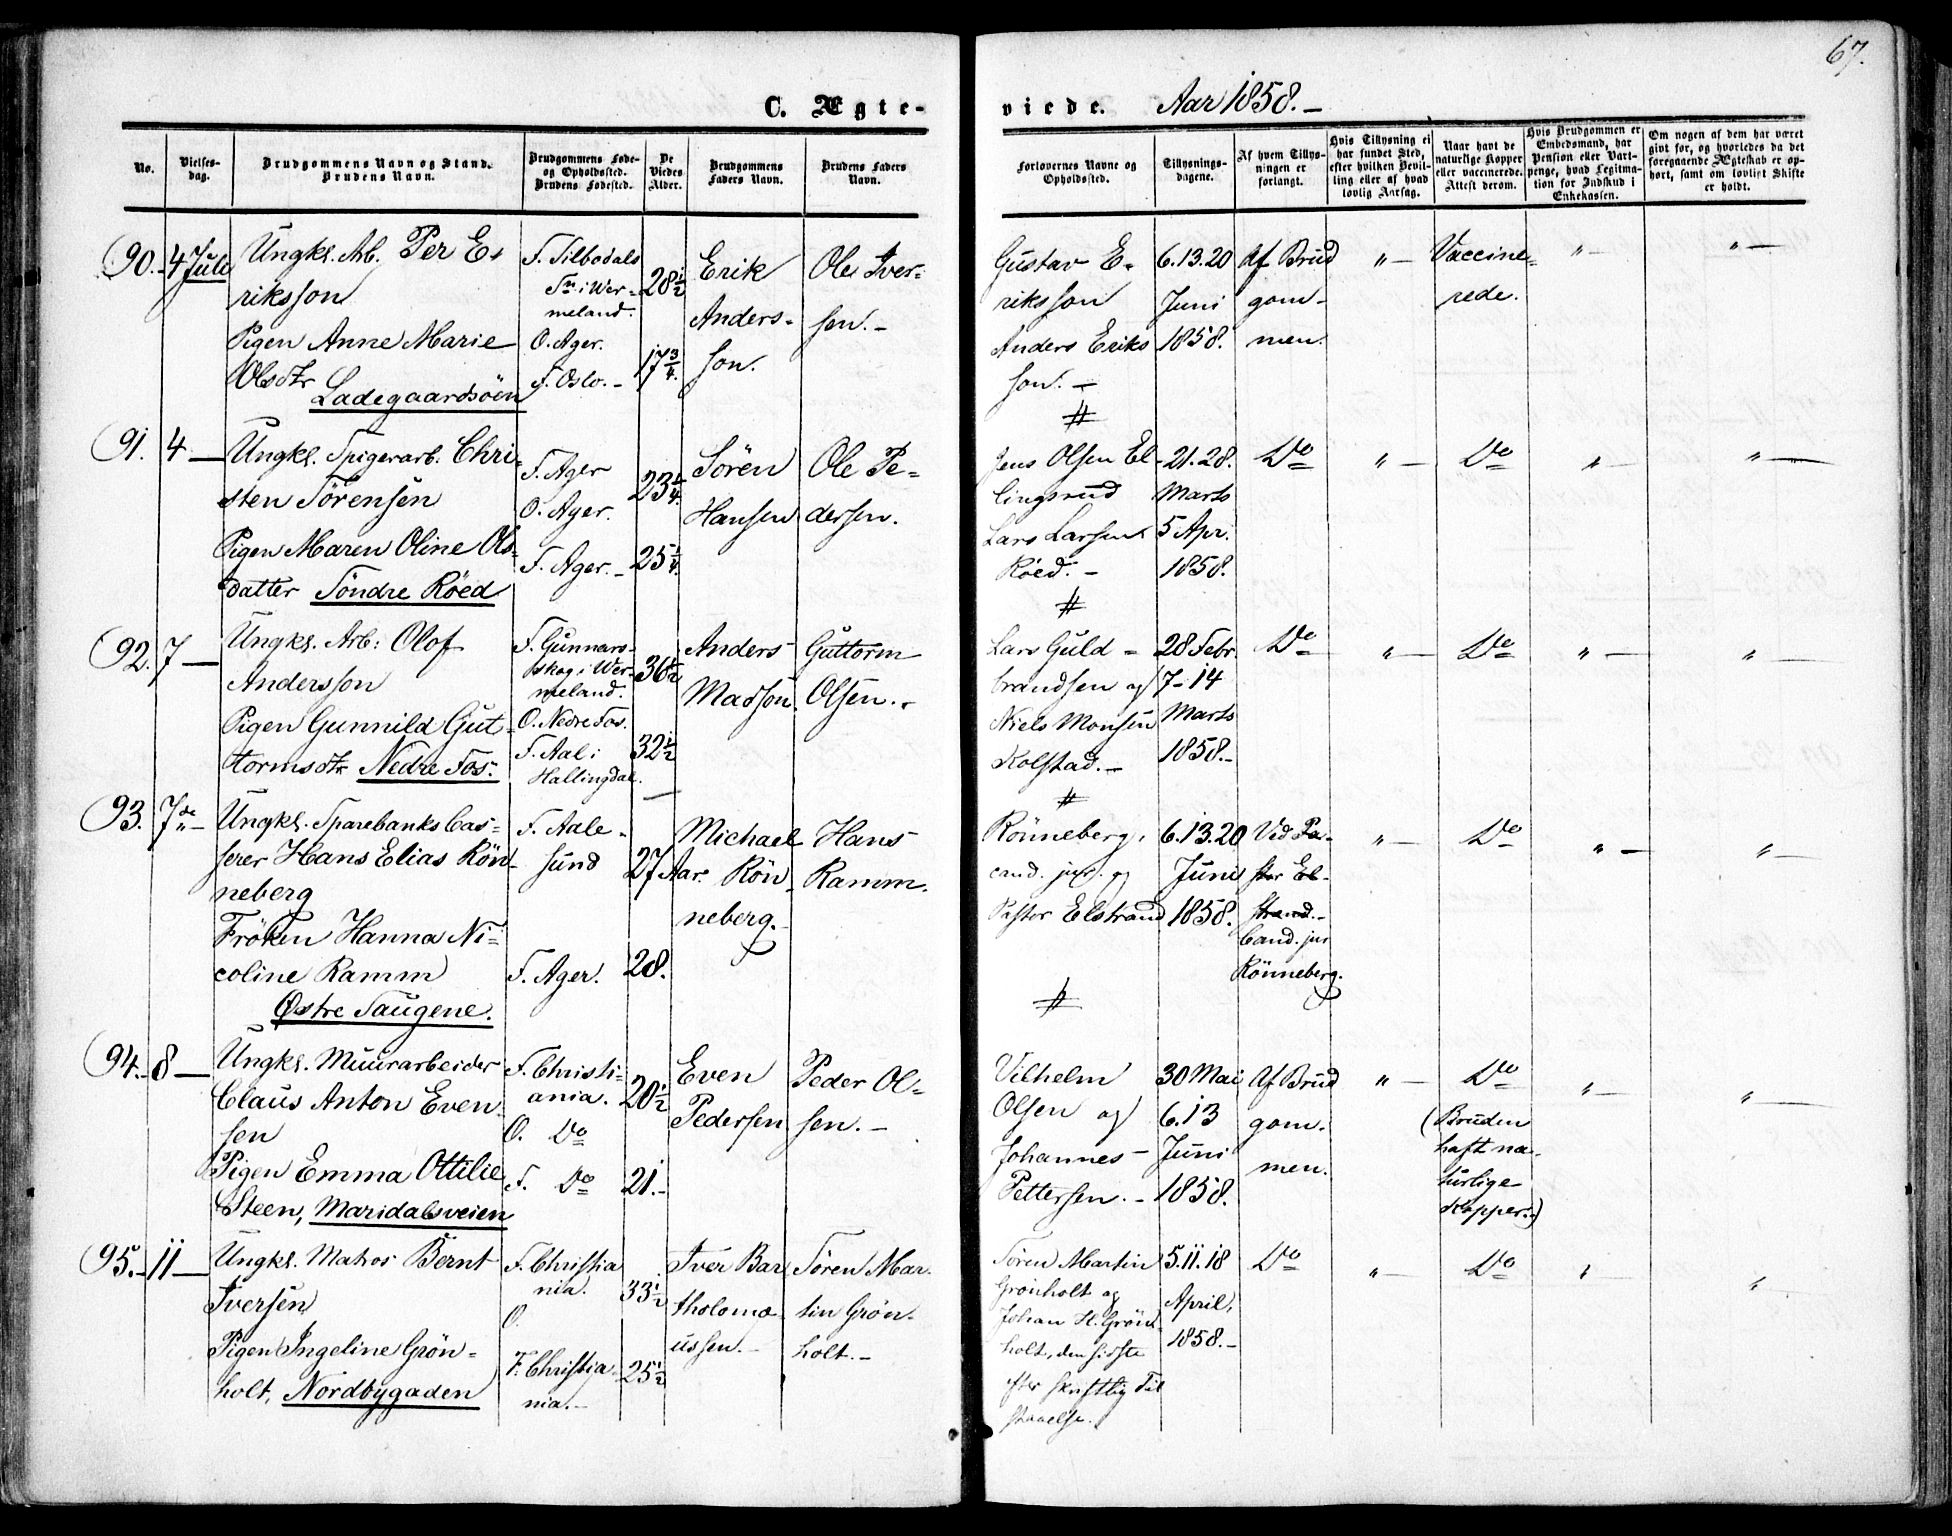 67.
C. Ægte-
viede. Aar 1858.-
No.
Vielses-
dag.
Brudgommens Navn og Stand.
Brudens Navn.
Brudgommens Føde-
og Opholdssted.
Brudens Fødested.
De
Viedes
Alder.
Brudgommens
Faders Navn.
Brudens Faders
Navn.
Forlovernes Navne og
Opholdssted.
Tillysnings-
dagene.
Af hvem Tillys-
ningen er
forlangt.
Hvis Tillysning ei
har fundet Sted,
efter hvilken Bevil-
ling eller af hvad
lovlig Aarsag.
Naar havt de
naturlige Kopper
eller vaccinerede.
Attest derom.
Hvis Brudgommen er
Embedsmand, har
Pension eller Vart-
penge, hvad Legitima-
tion for Indskud i
Enkekassen.
Om nogen af dem har været
givt før, og hvorledes da det
foregaaende Ægteskab er op-
hørt, samt om lovligt Skifte
er holdt.
90. 4 Juli
Ungkl. Arb. Per E-
riksson
Pigen Anne Marie
Olsdtr
Ladegaardsöen
F. Tilbodals
Sn i Wer-
meland.
O. Ager.
F. Oslo.-
28 1/2
17 3/4.
Erik
Anders-
son.
Ole Iver-
sen.-
Gustav E-
riksson
Anders Eriks
son.-
6.13.20
Juni
1858.
Af Brud
gom-
men.
" -
Vaccine-
rede.
" -
" -
#
91. 4 -
Ungkl. Spigerarb. Chri-
sten Sörensen
Pigen Maren Oline Ols-
datter Söndre Röed
F. Ager
O. Ager.
F. Ager.-
23 1/4.
25 1/4.
Sören
Hansen
Ole Pe-
dersen.
Jens Olsen El-
lingsrud
Lars Larsen
Röed.-
21.28.
Marts
5 Apr.
1858.
Do
" -
Do
" -
" -
#
92. 7 -
Ungkl. Arb: Olof
Andersson
Pigen Gunnild Gut-
tormsdtr Nedre Fos.
F. Gunnars-
skog i Wer-
meland.
O. Nedre Fos.
F. Aal i
Hallingdal.
36 1/2
32 1/2
Anders
Madson.
Guttorm
Olsen.
Lars Guld-
brandsen og
Niels Monsen
Kolstad.-
28 Febr.
7-14
Marts
1858.-
Do
" -
Do
" -
" -
#
93. 7de -
Ungkl. Sparebanks Cas-
serer Hans Elias Rön-
neberg
Fröken Hanna Ni-
coline Ramm
Østre Saugene.
F. Aale-
sund
F. Ager.
27 Aar.
28.
Michael
Rön-
neberg.
Hans
Ramm.
Rönneberg,
cand. jur. og
Pastor Elstrand
6.13.20
Juni
1858.
Ved Pa-
stor El-
strand.-
Cand. jur
Rönneberg.
" -
Do
" -
" -
#
94. 8 -
Ungkl. Muurarbeider
Claus Anton Even-
sen
Pigen Emma Ottilie
Steen, Maridalsveien
F. Christi-
ania.
O. Do
F. Do
20 1/2
21.-
Even
Pedersen
Peder Ol-
sen.-
Vilhelm
Olsen og
Johannes
Pettersen.-
30 Mai
6.13
Juni
1858.
Af Brud
gom-
men.
" -
Do
(Bruden
haft na-
turlige
Kopper.)
" -
" -
95. 11 -
Ungkl. Matros Bernt
Iversen
Pigen Ingeline Grön-
holt, Nordbygaden
F. Christia
nia.
O.
F. Christia-
nia.-
33 1/2
25 1/2
Iver Bar
tholomæ-
ussen.-
Sören Mar-
tin Grön-
holt.-
Sören Martin
Grönholt og
Johan H. Grön-
holt, den sidste
efter skriftlig Til
staaelse.
5.11.18
April,
1858.-
Do
" -
Do
" -
" -